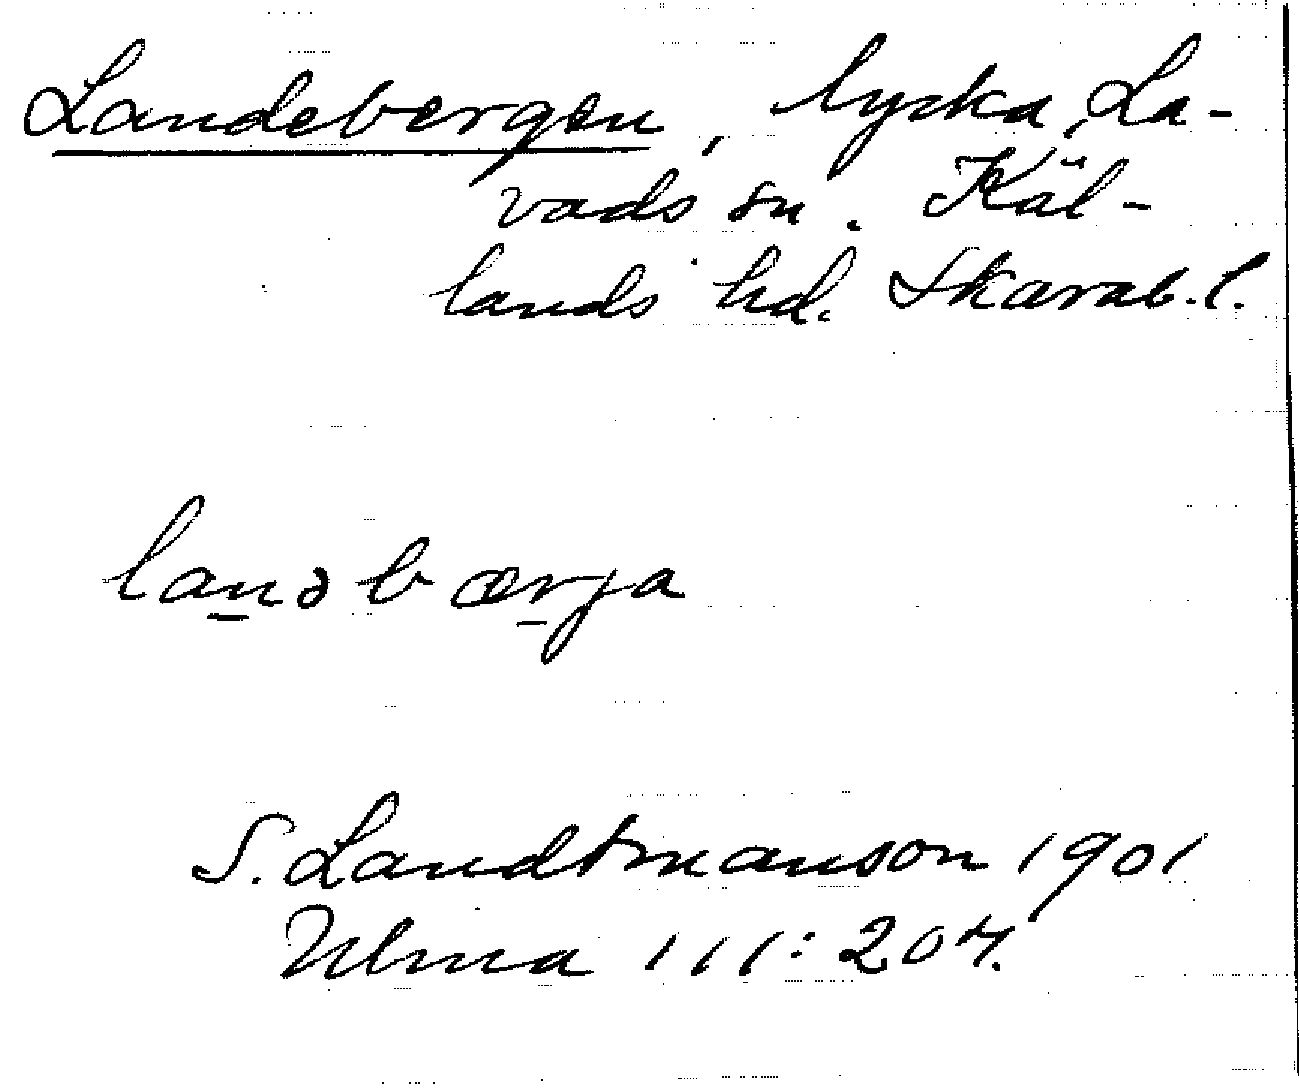 Landebergen, lycka, La-
vads sn. Käl-
lands hd. Skarab. l.
landbærja
S. Landtmanson 1901
Ulma 111:207.